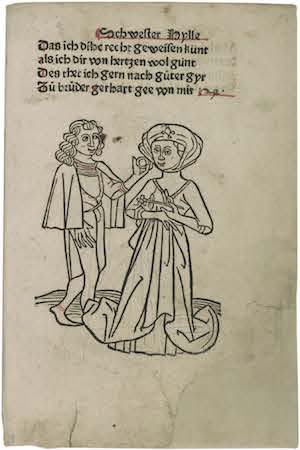 Sachwester Hylle
Das ich dise recht geweisen kunt
als ich dir von hertzen wol gunt
Des thet ich gern nach gůter gyr
Zů brůder gerhart gee von mir